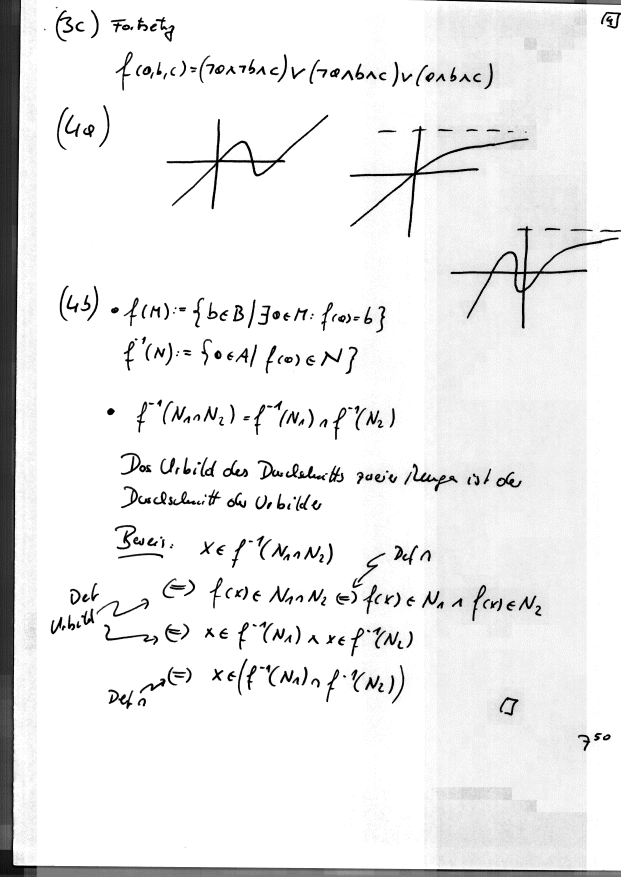 (3c) Fortsetzg
4
f(a,b,c)=(¬a∧¬b∧c)∨(¬a∧b∧c)∨(a∧b∧c)
(4a)
(4b) • f(M):={b∈B|∃a∈M: f(a)=b}
f⁻¹(N):={a∈A| f(a)∈N}
• f⁻¹(N₁∩N₂)=f⁻¹(N₁)∩f⁻¹(N₂)
Das Urbild des Durchschnitts zweier Mengen ist der
Durchschnitt der Urbilder
Beweis: x∈f⁻¹(N₁∩N₂)
Def ∩
⇔ f(x)∈N₁∩N₂ ⇔ f(x)∈N₁ ∧ f(x)∈N₂
Def
Urbild
⇔ x∈f⁻¹(N₁) ∧ x∈f⁻¹(N₂)
Def ∩ ⇔ x∈(f⁻¹(N₁)∩f⁻¹(N₂))
□
7⁵⁰